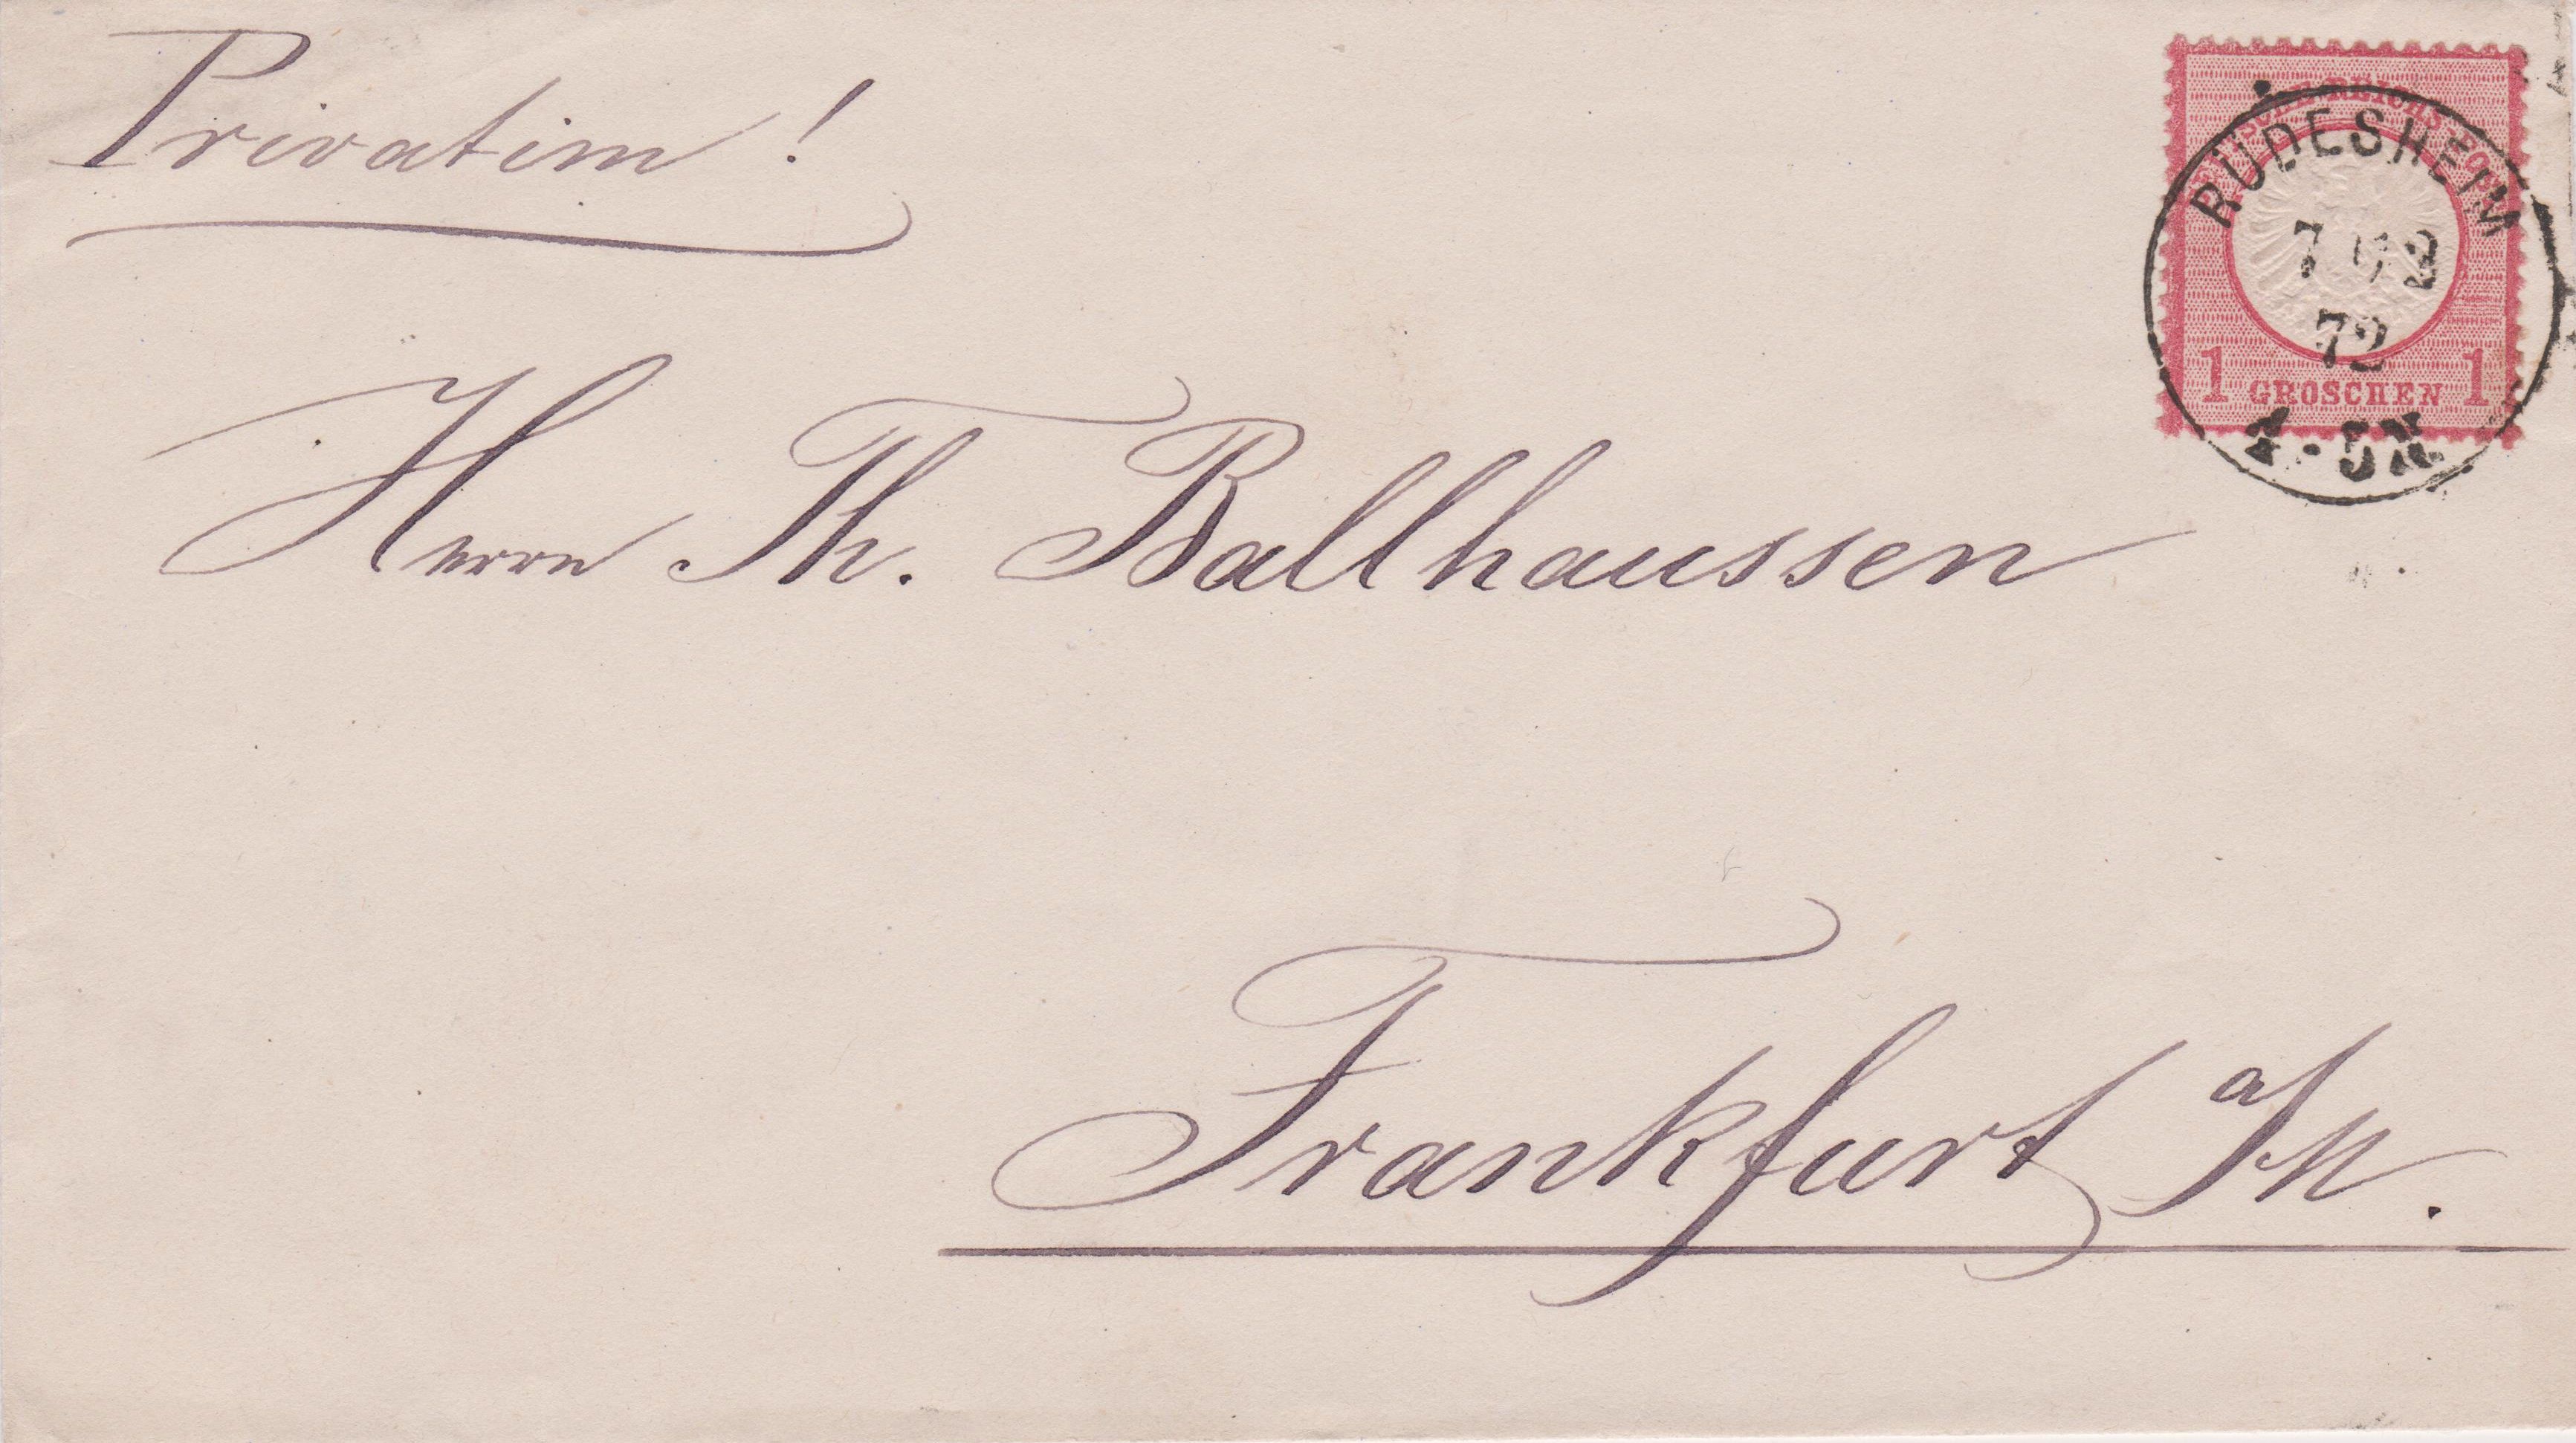 Privatim!
DEUTSCHE REICHS-POST
RÜDESHEIM
72
1 GROSCHEN 1
4-5N
Herrn Th. Ballhaussen
Frankfurt a/M.